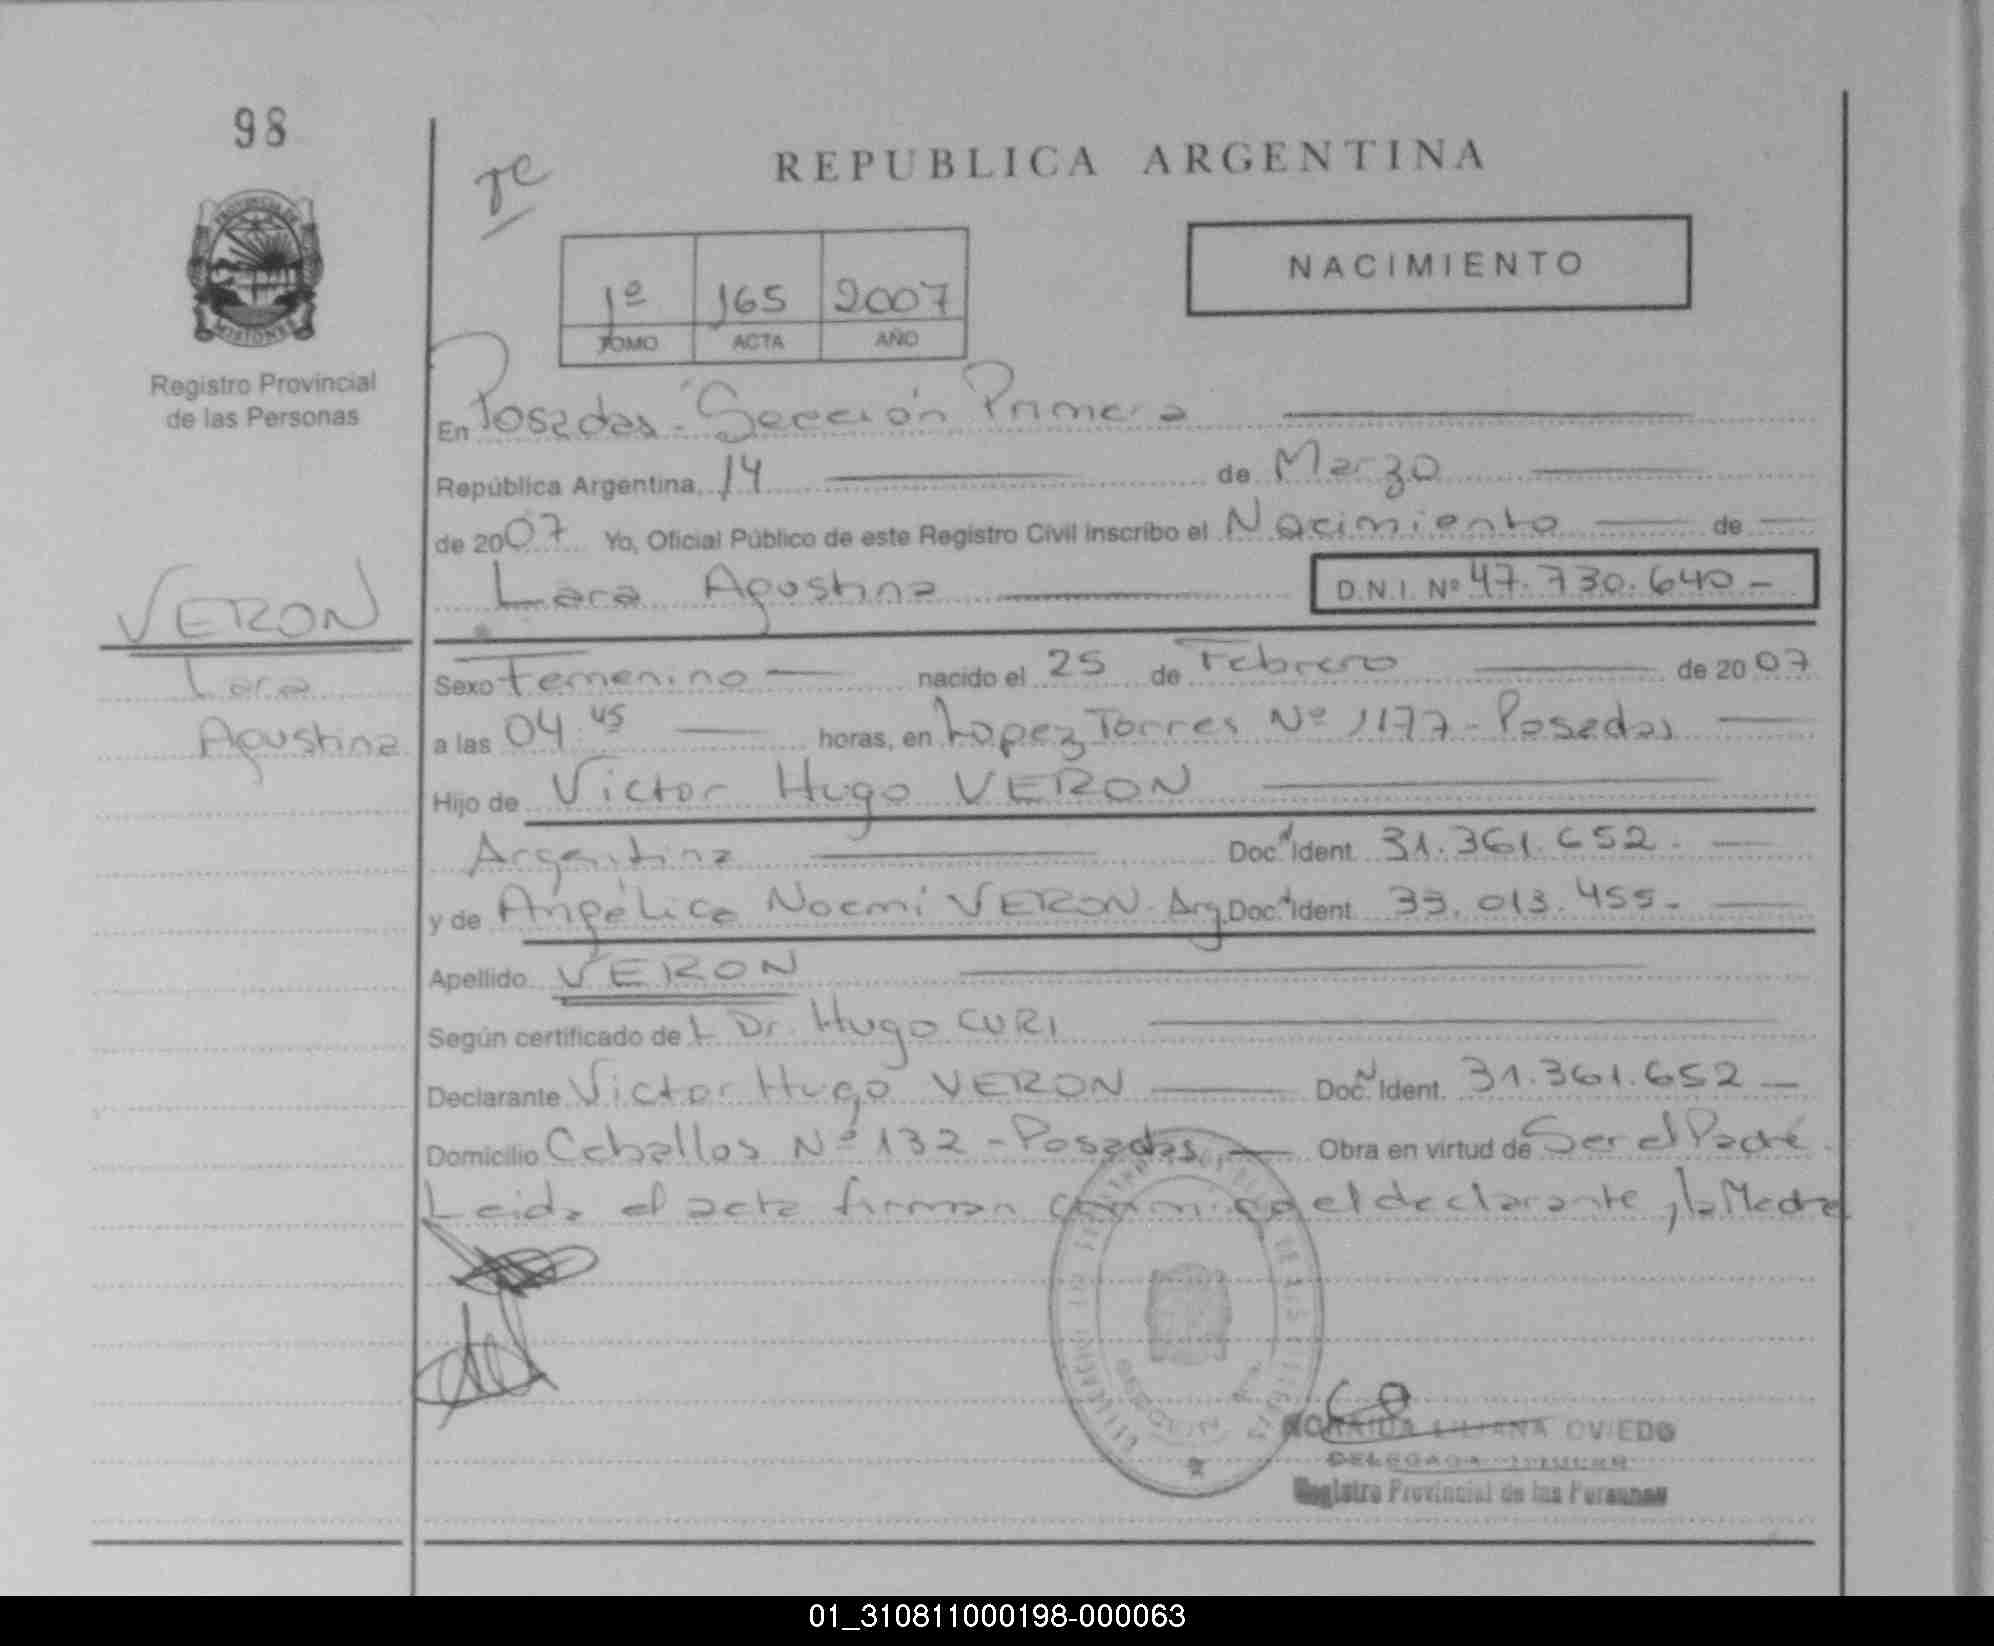 98
REPUBLICA ARGENTINA
PROVINCIA DE
MISIONES
NACIMIENTO
1º 165 2007
TOMO ACTA AÑO
Registro Provincial
de las Personas
En Posadas - Sección Primera
República Argentina, 14 de Marzo
de 2007 Yo, Oficial Público de este Registro Civil inscribo el Nacimiento de
Lara Agostina D.N.I. Nº 47.730.640-
VERON
Lara
Agostina
Sexo Femenino nacido el 25 de Febrero de 2007
a las 04:45 horas, en Lopez Torres Nº 1177 - Posadas
Hijo de Victor Hugo VERON
Argentina Doc. Ident. 31.361.652.
y de Angélica Noemí VERON - Arg. Doc. Ident. 33.013.455-
Apellido VERON
Según certificado de L Dr. Hugo CURI
Declarante Victor Hugo VERON Doc. N Ident. 31.361.652
Domicilio Ceballos Nº 132 - Posadas Obra en virtud de Ser el Padre.
Leida el acta firman conmigo el declarante y la Madre
LILIANA OVIEDO
DELEGADA TITULAR
Registro Provincial de las Personas
01_310811000198-000063